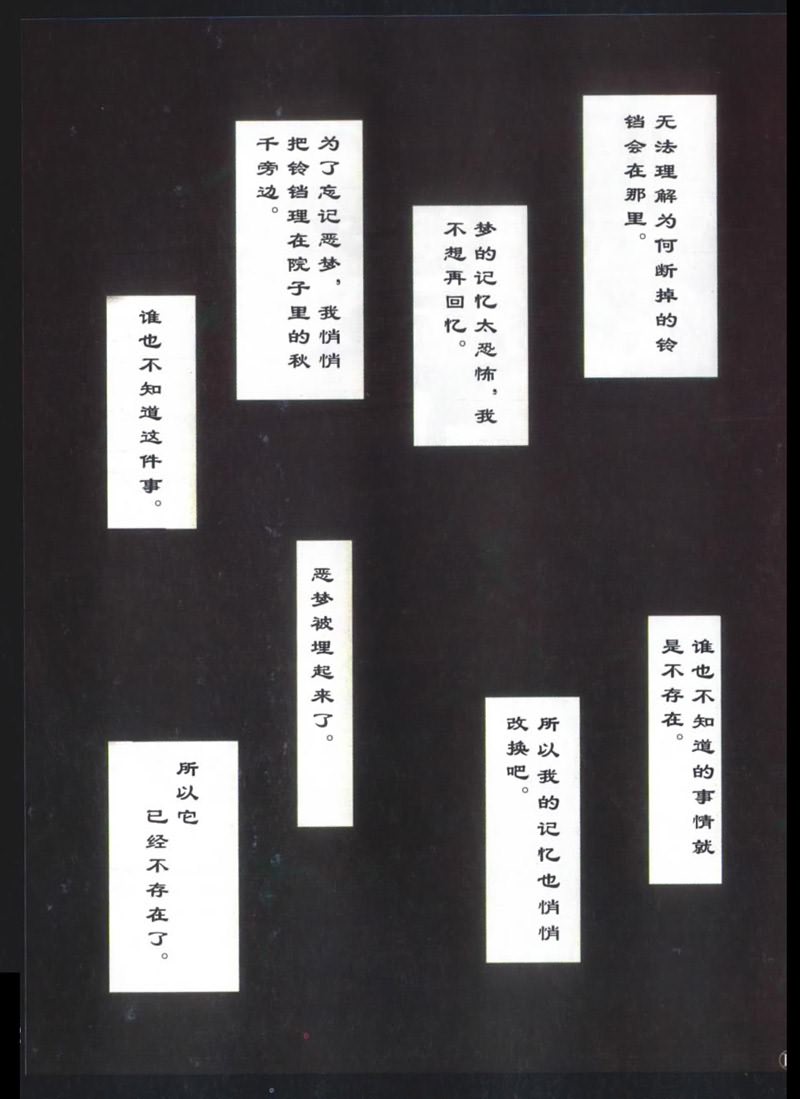 无法理解为何断掉的铃
铛会在那里。
梦的记忆太恐怖，我
不想再回忆。
为了忘记恶梦，我悄悄
把铃铛理在院子里的秋
千旁边。
谁也不知道这件事。
谁也不知道的事情就
是不存在。
所以我的记忆也悄悄
改换吧。
恶梦被埋起来了。
所以它
已经不存在了。